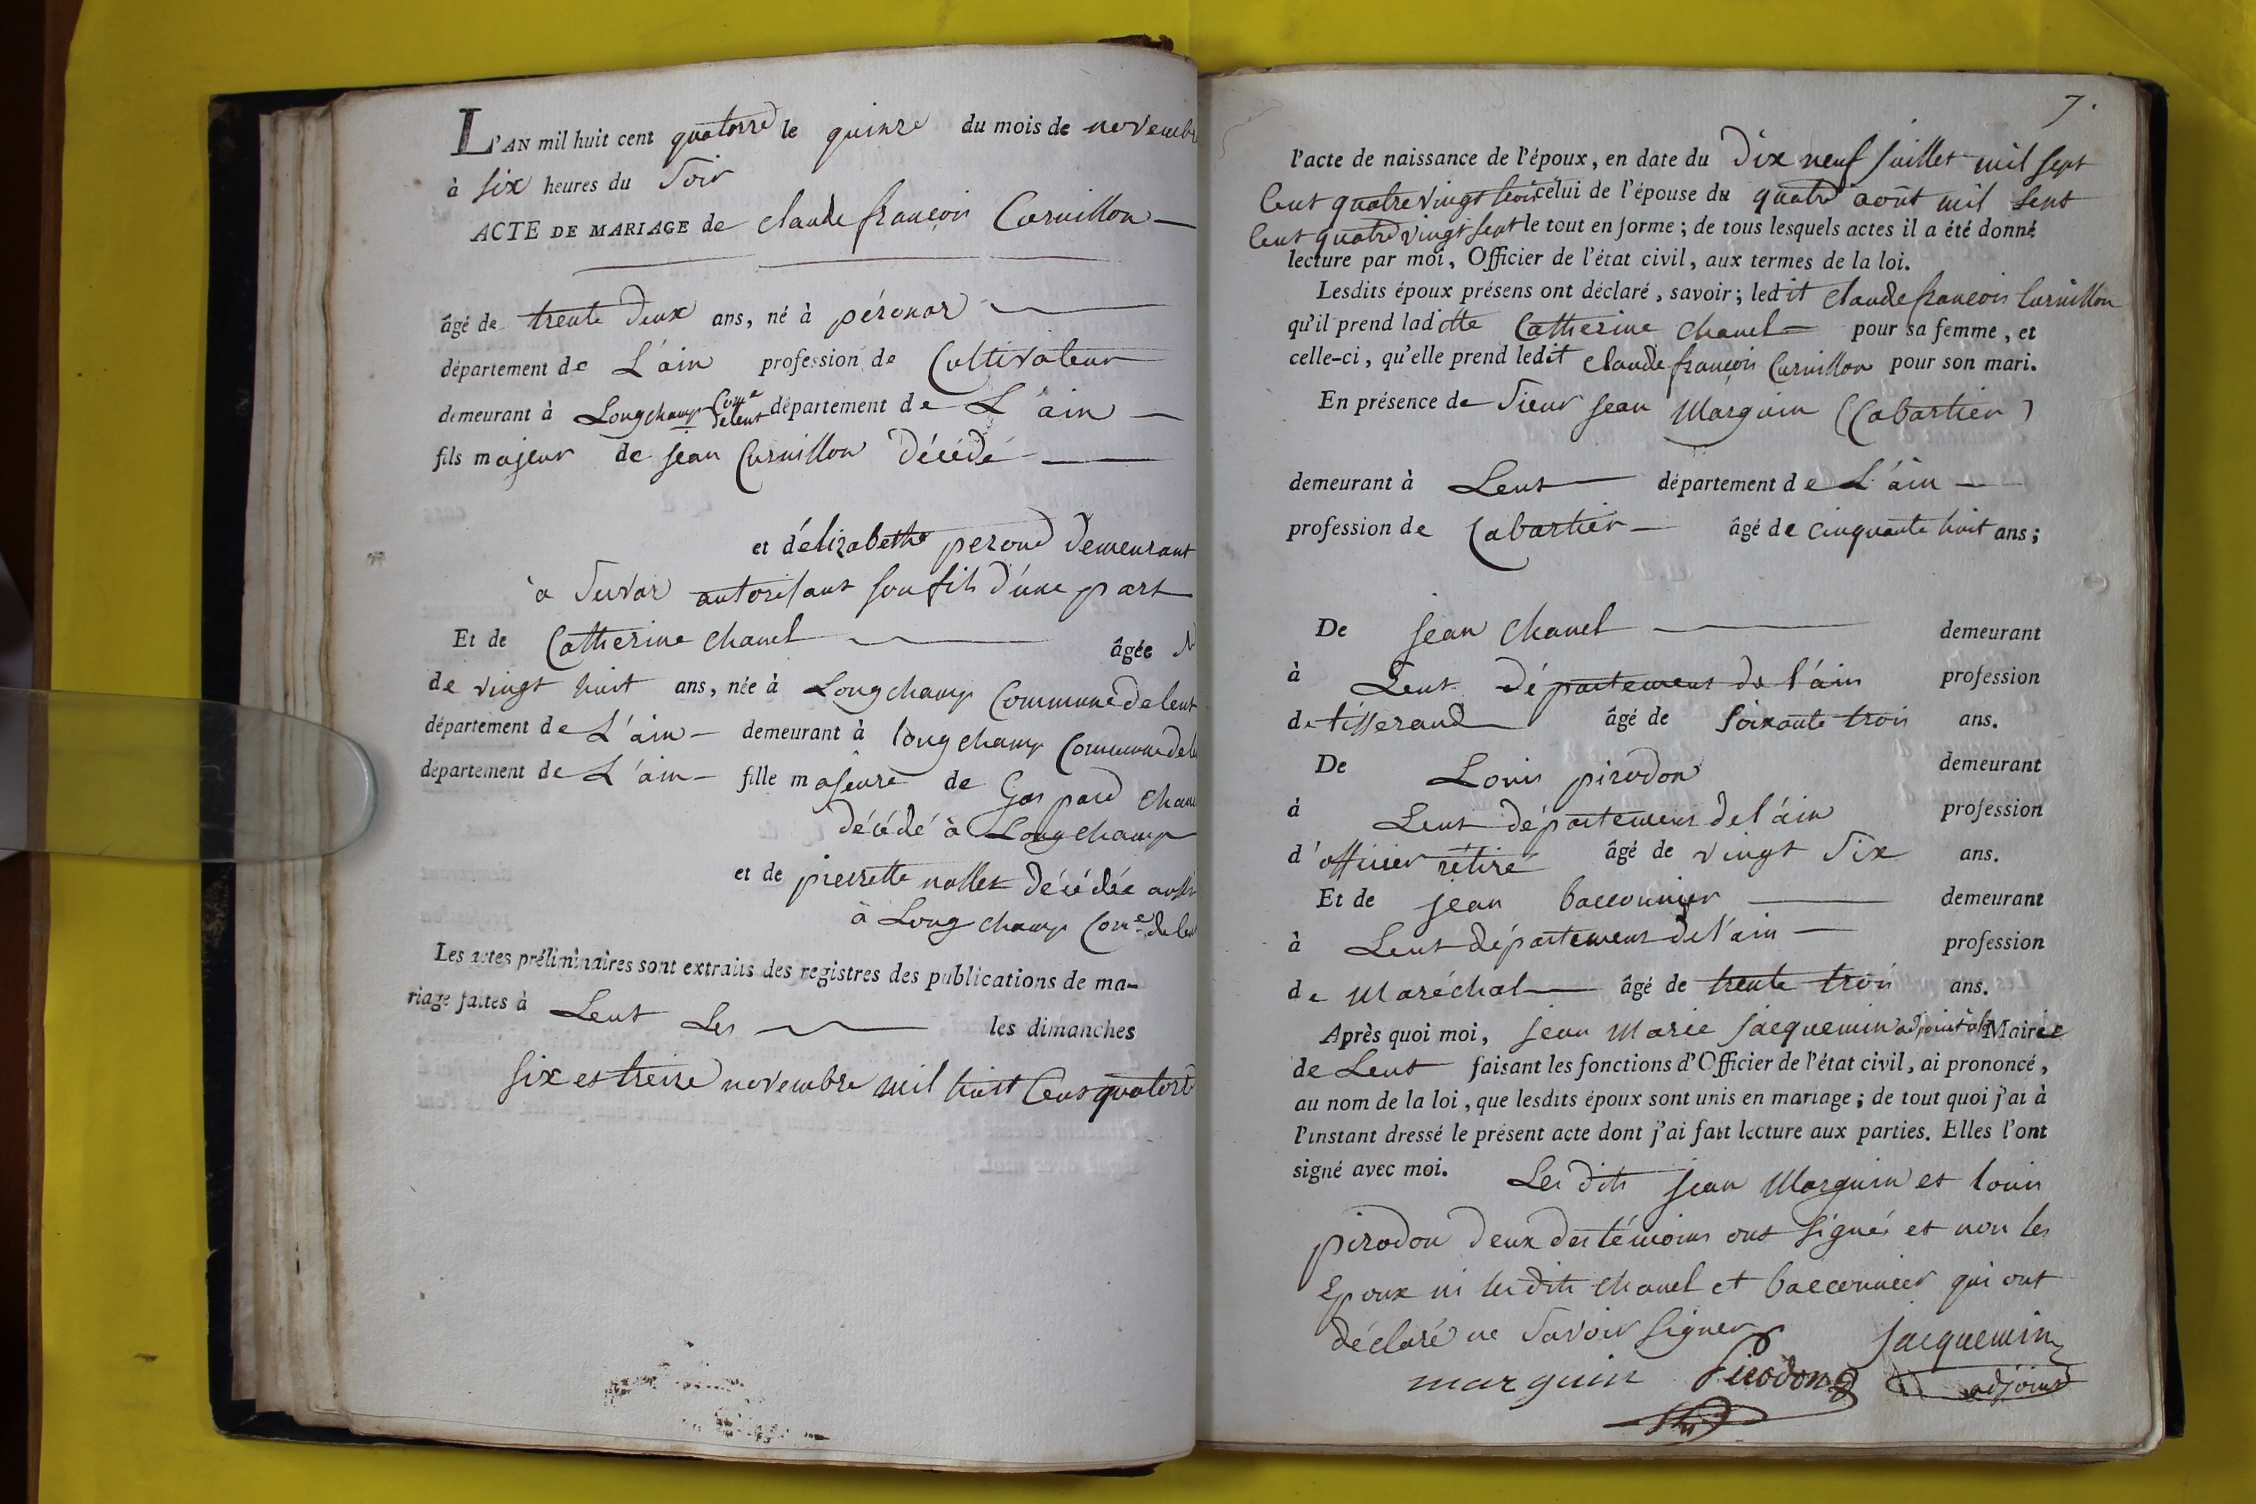 L'AN mil huit cent quatorze le quinze du mois de novembr
à six heures du Soir
ACTE DE MARIAGE de claude françois Curnillon
âgé de trente deux ans, né à péronas
département de L'ain profession de Cultivateur
demeurant à Longchamp Come delent département de L'ain
fils majeur de jean Curnillon décédé
et délizabethe peroud demeurant
à Servas autorisant son fils d'une part
Et de Catherine chanel âgée
de vingt huit ans, née à Longchamp Commune de lent
département de L'ain demeurant à longchamp Commune de l
département de L'ain fille majeure de Gaspard chane
décédé à Longchamp
et de pierrette nallet décédée aussi
à Longchamp Come de len
Les actes préliminaires sont extraits des registres des publications de ma-
riage faites à Lent Les les dimanches
six et treize novembre mil huit Cent quatorz
7.
l'acte de naissance de l'époux, en date du dix neuf juillet mil sept
Cent quatre vingt trois celui de l'épouse du quatre août mil sept
Cent quatre vingt sept le tout en forme ; de tous lesquels actes il a été donné
lecture par moi, Officier de l'état civil, aux termes de la loi.
Lesdits époux présens ont déclaré, savoir ; ledit claude françois Curnillon
qu'il prend laditte Catherine chanel pour sa femme, et
celle-ci, qu'elle prend ledit claude françois Curnillon pour son mari.
En présence de Sieur jean Marguin (Cabartier)
demeurant à Lent département de L'ain
profession de Cabartier âgé de cinquante huit ans ;
De jean chanel demeurant
à Lent département de l'ain profession
de tisserand âgé de soixante trois ans.
De Louis pirodon demeurant
à Lent département de l'ain profession
d'officier rétiré âgé de vingt six ans.
Et de jean bacconnier demeurant
à Lent département de l'ain profession
de Maréchal âgé de trente trois ans.
Après quoi moi, jean Marie jacquemin adjoint à la Mairie
de Lent faisant les fonctions d'Officier de l'état civil, ai prononcé,
au nom de la loi, que lesdits époux sont unis en mariage ; de tout quoi j'ai à
l'instant dressé le présent acte dont j'ai fait lecture aux parties. Elles l'ont
signé avec moi. Les dits jean Marguin et louis
pirodon deux des témoins ont signés et non les
Epoux ni les dits chanel et bacconnier qui ont
déclaré ne savoir signer
jacquemin
marguin Pirodon adjoint